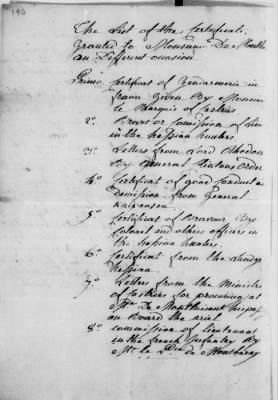 190
The List of the Certificate
Granted to Monsieur De Monthe
on Different ocasion
Primo Certificat of Gendarmerie in
france Given By Monsieur
le Marquis of Castries
2.° Brevet or Comission of Lieu
in the hessian hunters
3.° Letters from Lord Rhodon
By General Clintons Order
4.° Certificat of good Conduct a
Demission from General
5.° Certificat of Bravour By
Colonel and others officers in
the hessian hunters.
6.° Certificat from the Landgr
hessian.
7.° Letters from the Minister
of Castries for procuring at
on Board the ariel
8.° Commission of lieutenant
in the french Infantry By
Mr. le